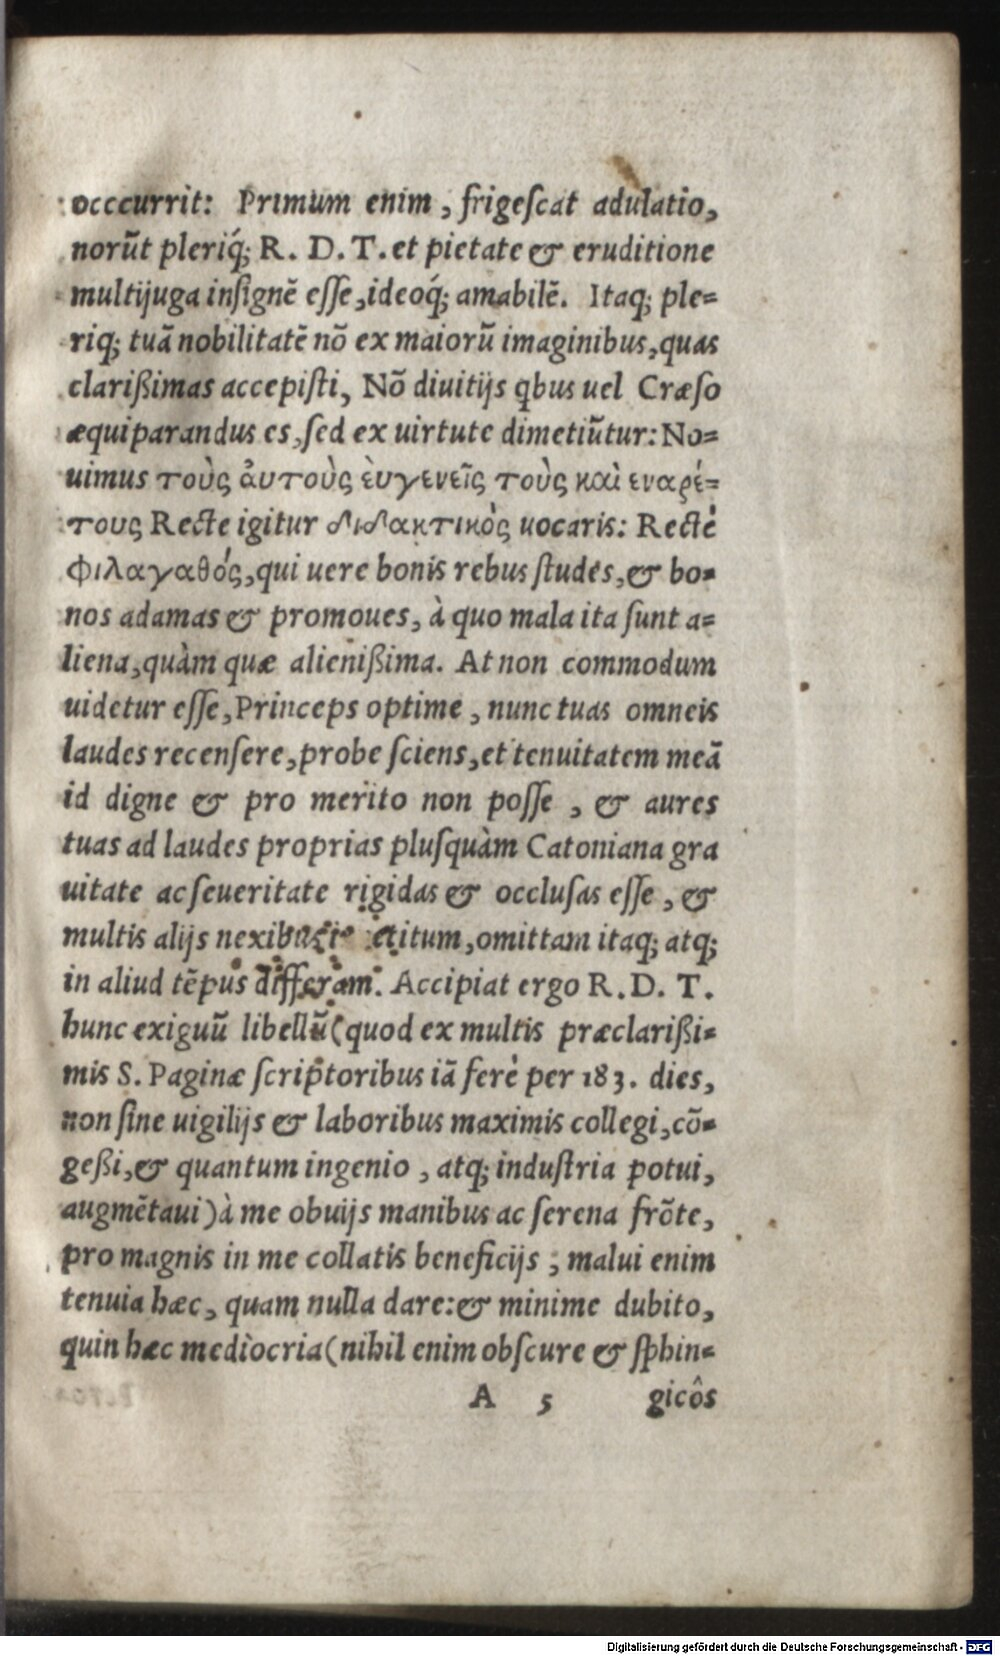 occcurrit: Primum enim, frigeſcat adulatio,
norũt pleriq́; R. D. T. et pietate & eruditione
multijuga inſignẽ eſſe, ideoq́; amabilẽ. Itaq; ple=
riq; tuã nobilitatẽ nõ ex maiorũ imaginibus, quas
clarißimas accepiſti, Nõ diuitijs qbus uel Cræſo
æquiparandus es, ſed ex uirtute dimetiũtur: No=
uimus τοὺς ἀυτοὺς ἐυγενεῖς τοὺς καὶ εναρέ=
τους Recte igitur διδακτικὸς uocaris: Rectè
φιλαγαθός, qui uere bonis rebus ſtudes, & bo=
nos adamas & promoues, à quo mala ita ſunt a=
liena, quàm quæ alienißima. At non commodum
uidetur eſſe, Princeps optime, nunc tuas omneis
laudes recenſere, probe ſciens, et tenuitatem meã
id digne & pro merito non poſſe, & aures
tuas ad laudes proprias pluſquàm Catoniana gra
uitate ac ſeueritate rigidas & occluſas eſſe, &
multis alijs nexibus omittam itaq; atq;
in aliud tẽpus differam. Accipiat ergo R. D. T.
hunc exiguũ libellũ (quod ex multis præclarißi=
mis S. Paginæ ſcriptoribus iã ferè per 183. dies,
non ſine uigilijs & laboribus maximis collegi, cõ=
geßi, & quantum ingenio, atq; induſtria potui,
augmẽtaui) à me obuijs manibus ac ſerena frõte,
pro magnis in me collatis beneficijs; malui enim
tenuia hæc, quam nulla dare: & minime dubito,
quin hæc mediocria (nihil enim obſcure & ſphin=
A 5 gicôs
Digitalisierung gefördert durch die Deutsche Forschungsgemeinschaft - DFG